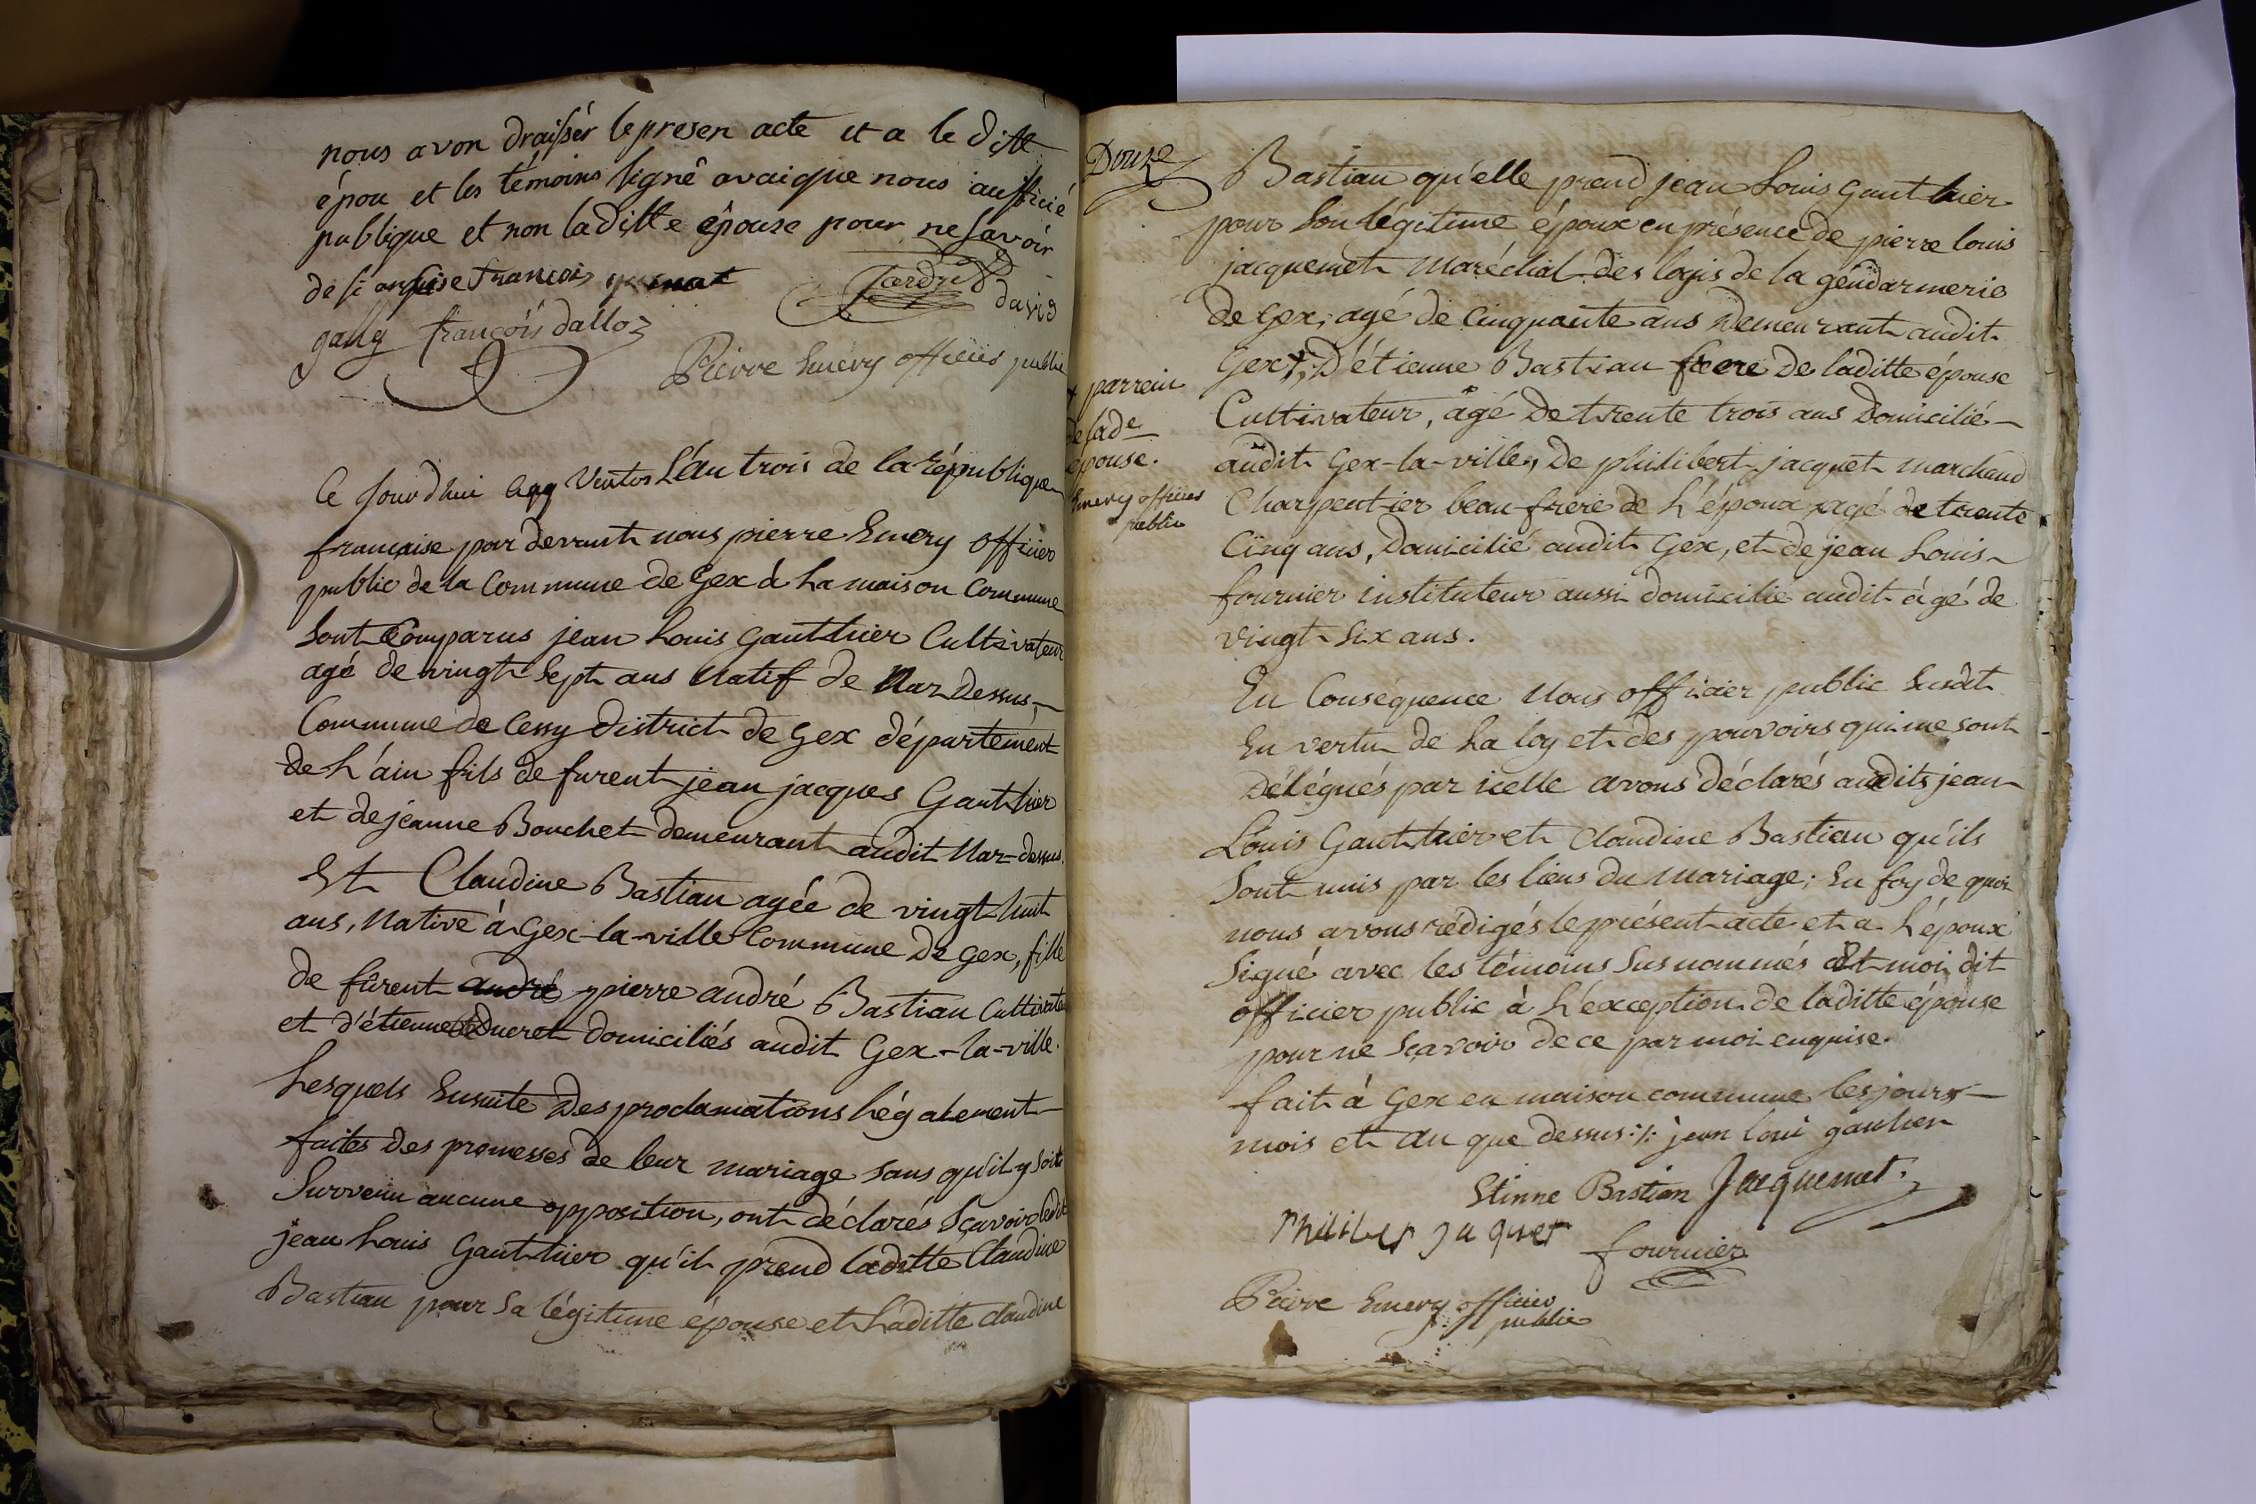 nous avon draissér le presen acte et a le ditte
épou et les témoins signê avaique nous aufficié
publique et non la ditte êpouse pour ne savoir
de si anquise francois
david
gally françóis dalloz
Pierre Emery officiés public
Ce jourd'hui Ventos L'án trois de la république
française par devant nous pierre Emery officier
public de la Commune de Gex à La maison Commune
Sont Comparus jean Louis Gautthier Cultivateur
agé de vingt Sept ans Natif de Naz Dessus,
Commune de Cessy District de Gex département
de L'ain fils de furent jean jacques Gautthier
et de jeanne Bouchet demeurant audit Naz-dessus.
Et Claudine Bastian agée de vingt huit
ans, Native à Gex-la-ville Commune de Gex, fille
de fûrent andré pierre andré Bastian Cultivateur
et d'étienne Ducret domiciliés audit Gex-la-ville.
Lesquels Ensuite Des proclamations Légalement
faites des promesses de leur mariage sans qu'il y soit
Survenu aucune opposition, ont déclarés Sçavoir ledit
jean Louis Gautthier qu'il prend laditte Claudine
Bastian pour Sa légitime épouse et Laditte claudine
Douze
Bastian qu'elle prend jean Louis Gautthier
pour Son légitime époux en présence de pierre louis
jacquemet Maréchal des logis de la gendarmerie
de Gex, agé de Cinquante ans Demeurant audit
Gex, D'étienne Bastian frere de laditte épouse
x parrein
de lade
épouse.
Emery officier
public
Cultivateur, âgé De trente trois ans Domicilié
audit Gex-la-ville, De philibert jacquet Marchand
Charpentier beau frere de L'époux agé de trente
Cinq ans, Domicilié audit Gex, et de jean Louis
fournier instituteur aussi domicilié audit âgé de
vingt Six ans.
En Conséquence Nous officier public Susdit
En vertu de La loy et des pouvoirs qui me sont
Délégués par icelle avons déclarés audits jean
Louis Gautthier et Claudine Bastian qu'ils
Sont unis par les liens du Mariage; En foy de quoi
nous avons rédigés le présent acte et a L'époux
Signé avec les témoins Susnommés Et moi dit
officier public à L'exception de laditte épouse
pour ne Sçavoir de ce par moi enquise.
fait à Gex en maison commune les jours
mois et an que dessus :/: jean loui gautier
Etinne Bastian Jacquemet
Philiber Jaquet
fournier
Pierre Emery officier
public